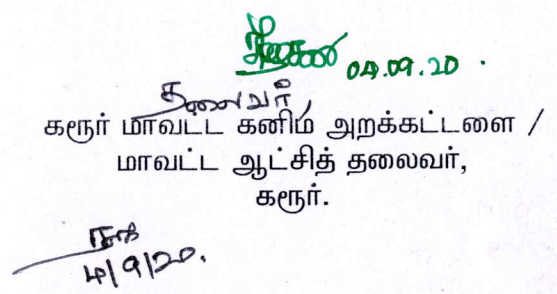 04.09.20
தலைவர்,
கரூர் மாவட்ட கனிம அறக்கட்டளை /
மாவட்ட ஆட்சித் தலைவர்,
கரூர்.
4/9/20.